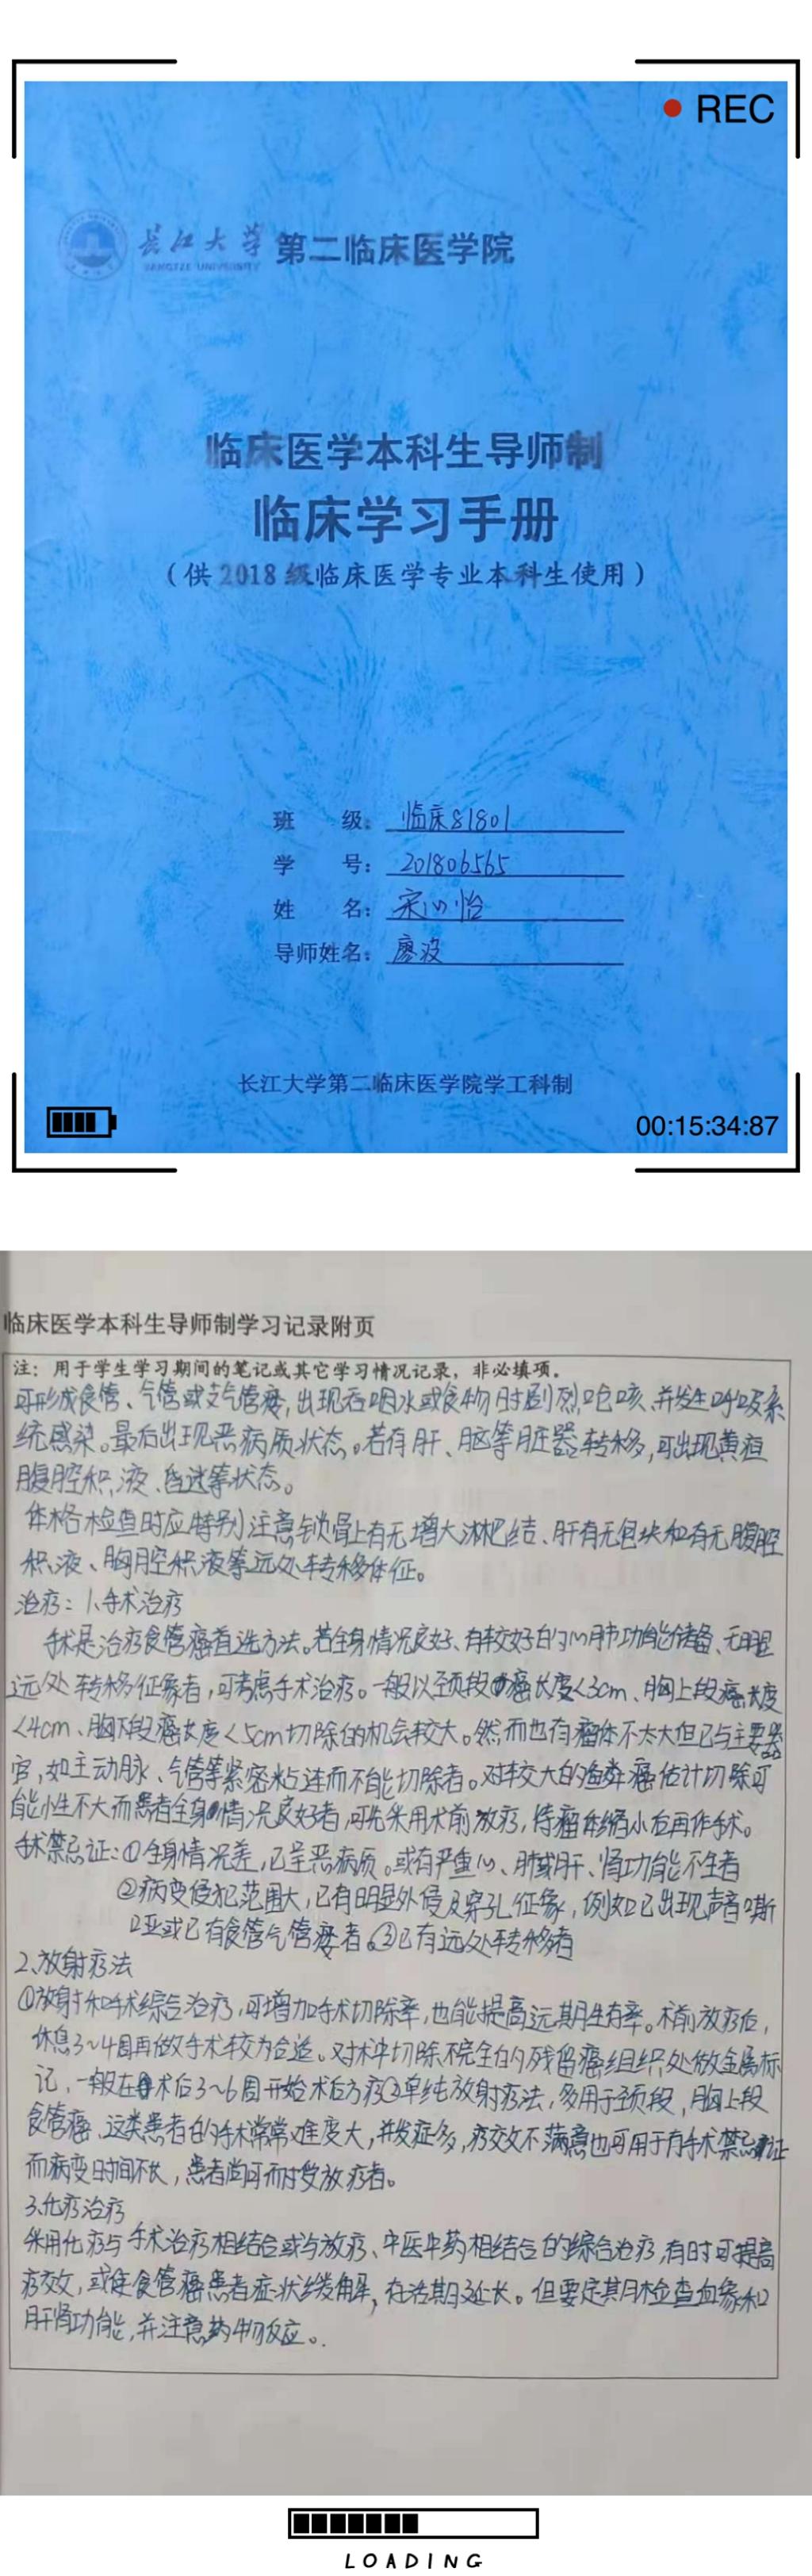 REC
长江大学 第二临床医学院
YANGTZE UNIVERSITY
临床医学本科生导师制
临床学习手册
（供 2018 级临床医学专业本科生使用）
班 级： 临床81801
学 号： 201806565
姓 名： 宋心怡
导师姓名： 廖波
长江大学第二临床医学院学工科制
00:15:34:87
临床医学本科生导师制学习记录附页
注：用于学生学习期间的笔记或其它学习情况记录，非必填项。
可形成食管、气管或支气管瘘，出现吞咽水或食物时剧烈呛咳、并发生呼吸系
统感染。最后出现恶病质状态。若有肝、脑等脏器转移，可出现黄疸
腹腔积液、昏迷等状态。
体格检查时应特别注意锁骨上有无增大淋巴结、肝有无包块和有无腹腔
积液、胸腔积液等远处转移体征。
治疗：1、手术治疗
手术是治疗食管癌首选方法。若全身情况良好、有较好的心肺功能储备、无明显
远处转移征象者，可考虑手术治疗。一般以颈段癌长度<3cm、胸上段癌长度
<4cm、胸下段癌长度<5cm切除的机会较大。然而也有瘤体不太大但已与主要器
官，如主动脉、气管等紧密粘连而不能切除者。对较大的鳞癌估计切除可
能性不大而患者全身情况良好者，可先采用术前放疗，待瘤体缩小后再作手术。
手术禁忌证：①全身情况差，已呈恶病质。或有严重心、肺或肝、肾功能不全者
②病变侵犯范围大，已有明显外侵及穿孔征象，例如已出现声音嘶
哑或已有食管气管瘘者。③已有远处转移者
2、放射疗法
①放射和手术综合治疗，可增加手术切除率，也能提高远期生存率。术前放疗后，
休息3~4周再做手术较为合适。对术中切除不完全的残留癌组织处做金属标
记，一般在术后3~6周开始术后放疗②单纯放射疗法，多用于颈段，胸上段
食管癌、这类患者的手术常常难度大，并发症多，疗效不满意也可用于有手术禁忌证
而病变时间不长，患者尚可耐受放疗者。
3、化疗治疗
采用化疗与手术治疗相结合或与放疗、中医中药相结合的综合治疗，有时可提高
疗效，或使食管癌患者症状缓解，存活期延长。但要定期检查血象和
肝肾功能，并注意药物反应。
LOADING